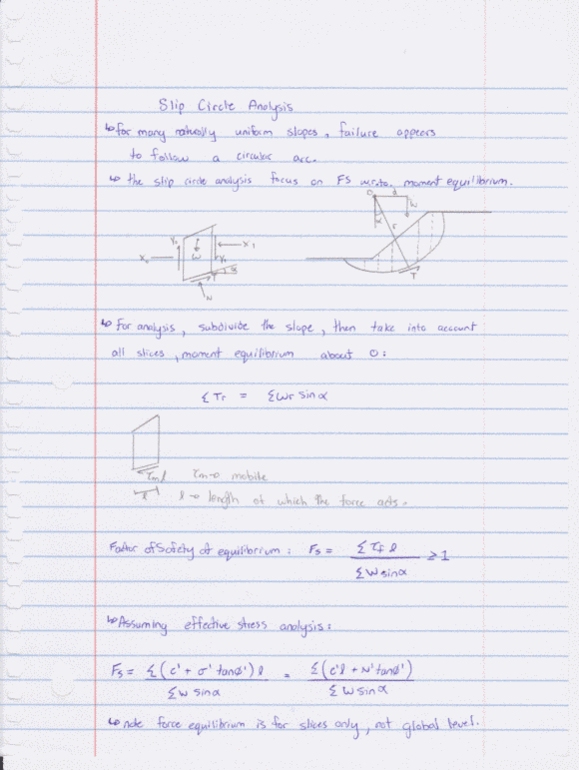 Slip Circle Analysis
↳ for many naturally uniform slopes, failure appears
to follow a circular arc.
↳ the slip circle analysis focus on FS w.r.to. moment equilibrium.
O d
W
α r
T
X₁
W
α
T
N
↳ for analysis, subdivide the slope, then take into account
all slices, moment equilibrium about O:
ΣTr = ΣWr sinα
τm l τm → mobile
l l → length of which the force acts.
Factor of Safety at equilibrium: Fs = Στf l / ΣW sinα ≥ 1
↳ Assuming effective stress analysis:
Fs = Σ(c' + σ' tanø') l / ΣW sinα = Σ(c'l + N' tanø') / ΣW sinα
↳ note force equilibrium is for slices only, not global level.